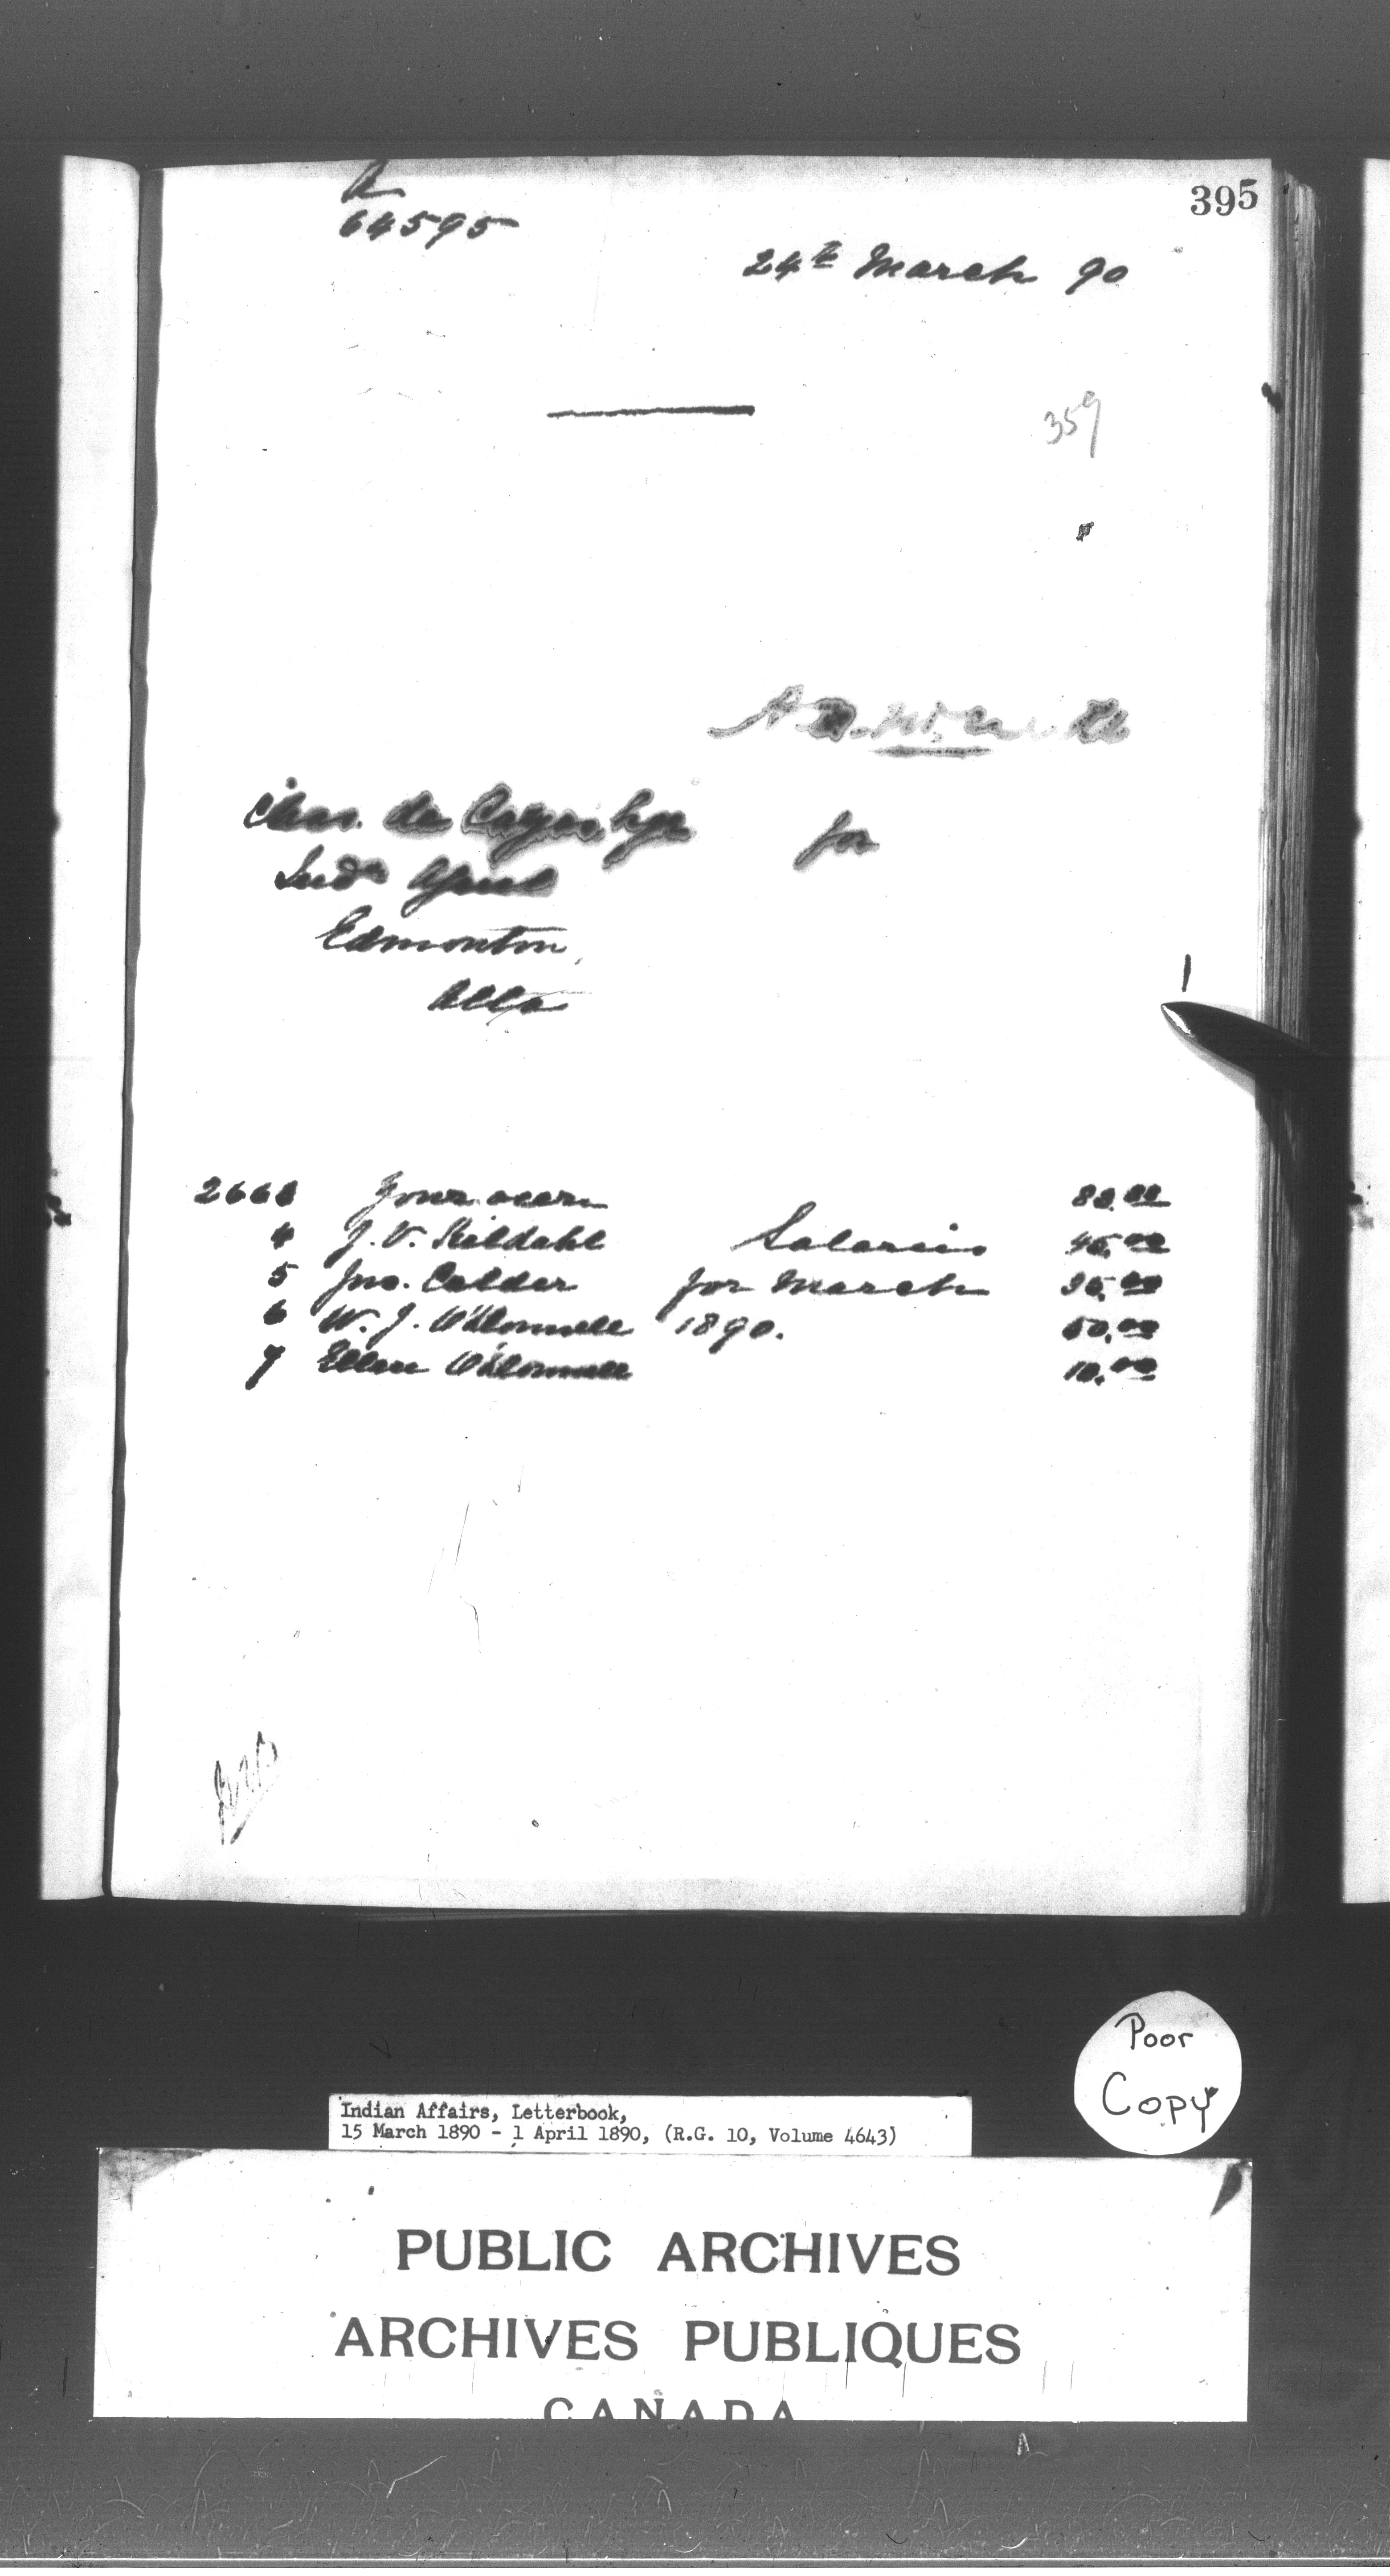 395
A
64595
24th March 90
359
Chas. de Cazes Esqre for
Indn Agent
Edmonton,
Alta
2663 Your own 83.00
4 J. V. Kildahl Salaries 45.00
5 Jno. Calder for March 35.00
6 W. J. O'Donnell 1890. 50.00
7 Ellen O'Donnell 10.00
Poor
Copy
Indian Affairs, Letterbook,
15 March 1890 - 1 April 1890, (R.G. 10, Volume 4643)
PUBLIC ARCHIVES
ARCHIVES PUBLIQUES
CANADA